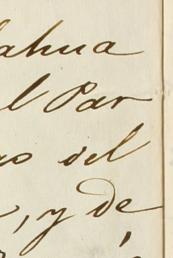 lahua
l Par
o del
, y de